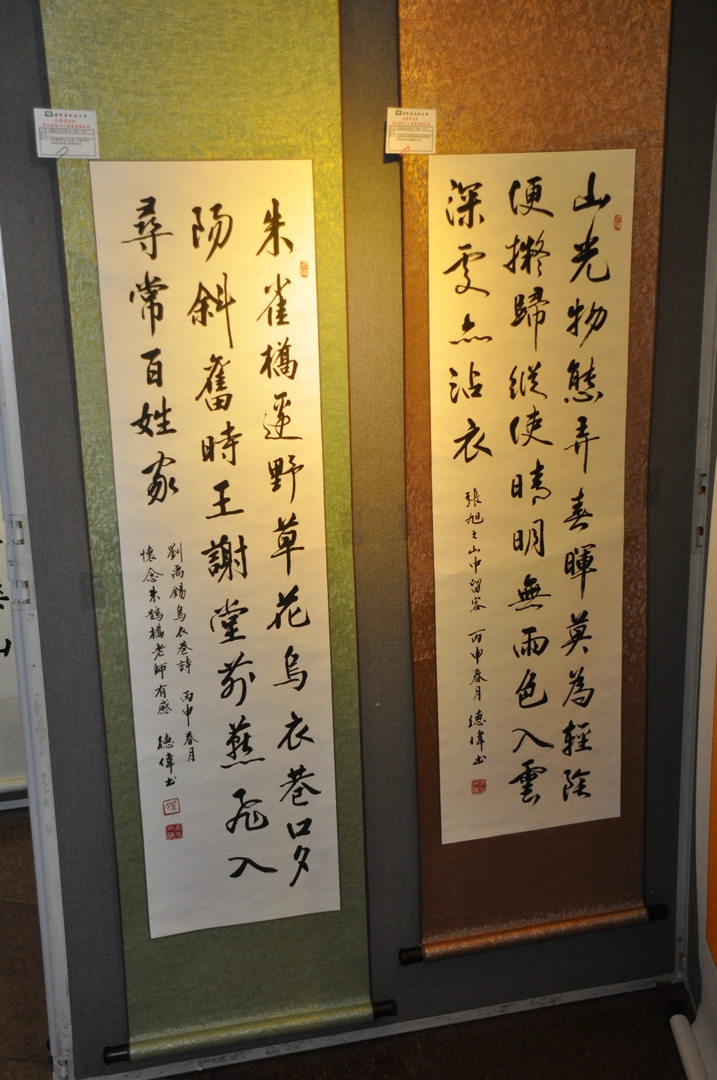 山光物態弄春暉莫為輕陰
便擬歸縱使晴明無雨色入雲
深處亦沾衣
張旭之山中留客 丙申春月 德偉書
朱雀橋邊野草花烏衣巷口夕
陽斜舊時王謝堂前燕飛入
尋常百姓家
劉禹錫烏衣巷詩 丙申春月
懷念朱鵲橋老師有感 德偉書